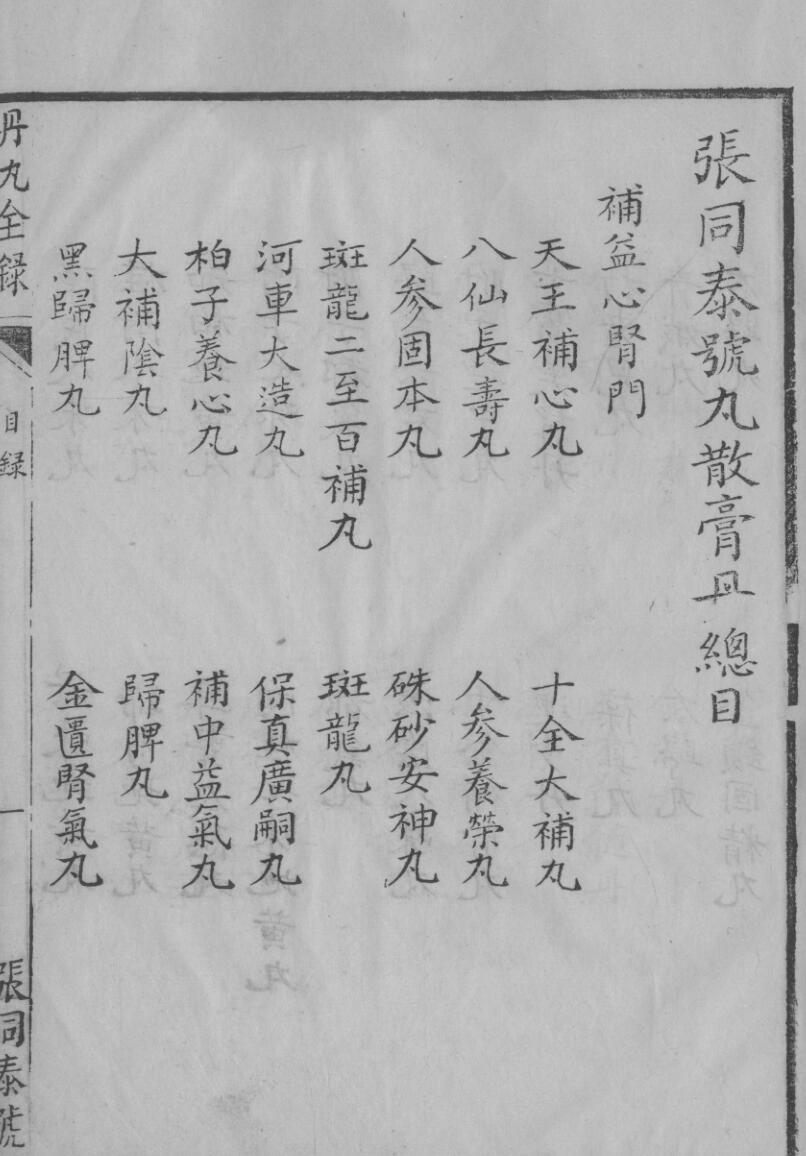 張同泰號丸散膏丹總目
補益心腎門
天王補心丸
十全大補丸
八仙長壽丸
人參養榮丸
人參固本丸
硃砂安神丸
斑龍二至百補丸
斑龍丸
河車大造丸
保真廣嗣丸
柏子養心丸
補中益氣丸
大補陰丸
歸脾丸
黑歸脾丸
金匱腎氣丸
丹丸全錄
目錄
一
張同泰號